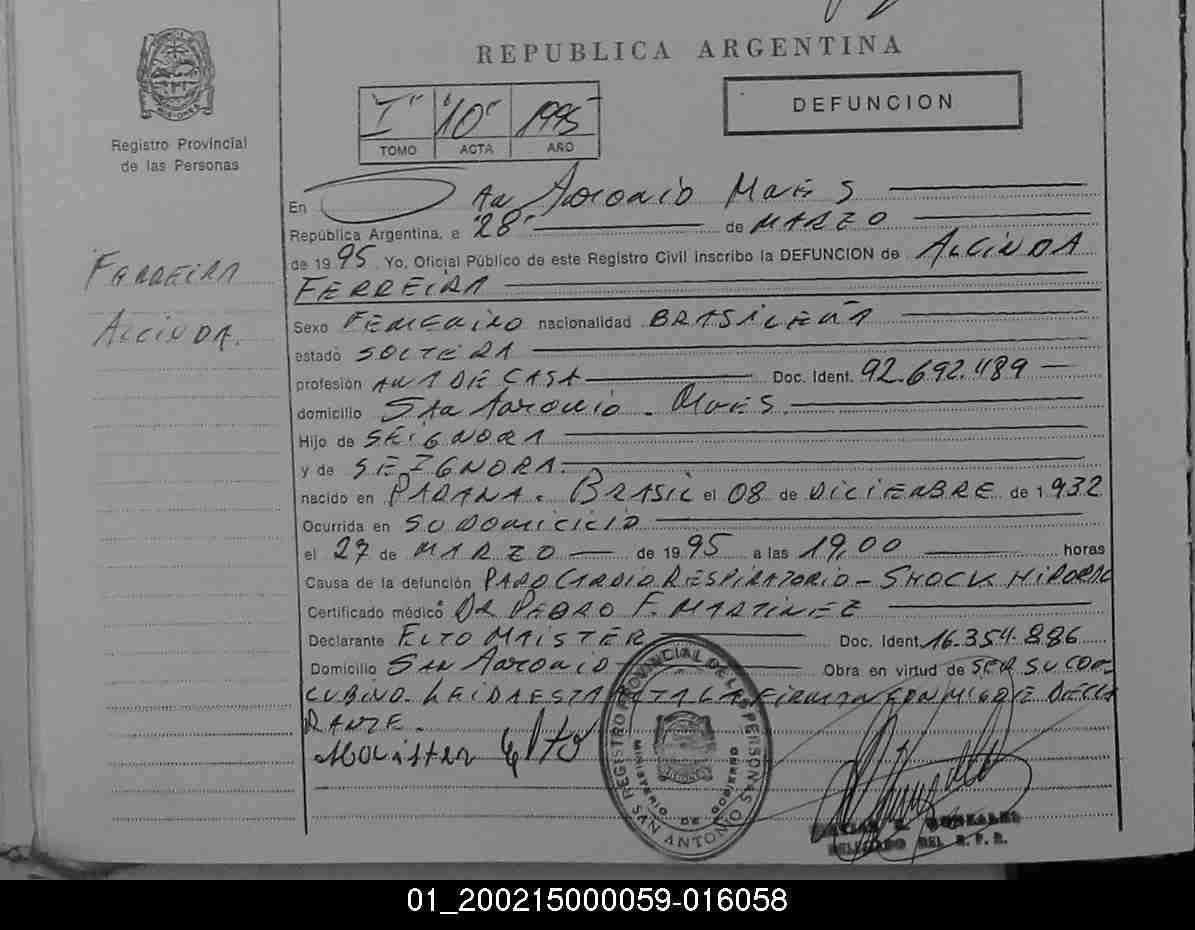 REPUBLICA ARGENTINA
DEFUNCION
"I" "10" 1995
TOMO ACTA AÑO
Registro Provincial
de las Personas
FARREIRA
ALCINDA.
En San Antonio Mnes
República Argentina, a "28" de MARZO
de 1995 Yo, Oficial Público de este Registro Civil inscribo la DEFUNCION de ALCINDA
FERREIRA
Sexo FEMENINO nacionalidad BRASILEÑA
estado SOLTERA
profesión AMA DE CASA Doc. Ident. 92.692.489
domicilio San Antonio - Mnes.
Hijo de SE IGNORA
y de SE IGNORA.
nacido en PARANA. BRASIL el 08 de DICIEMBRE de 1932
Ocurrida en SU DOMICILIO
el 27 de MARZO de 1995 a las 19,00 horas
Causa de la defunción PARO CARDIO RESPIRATORIO - SHOCK
Certificado médico DR PEDRO F. MARTINEZ
Declarante ELTO MAISTER Doc. Ident. 16.354.886
Domicilio SAN ANTONIO Obra en virtud de SER SU CON-
CUBINO. LEIDA ESTA ACTA LA FIRMAN CONMIGO EL DECLA
RANTE.
Maister Elto
REGISTRO PROVINCIAL DE LAS PERSONAS
MINISTERIO DE GOBIERNO
SAN ANTONIO
GONZALEZ
DELEGADO DEL R. P. P.
01_200215000059-016058